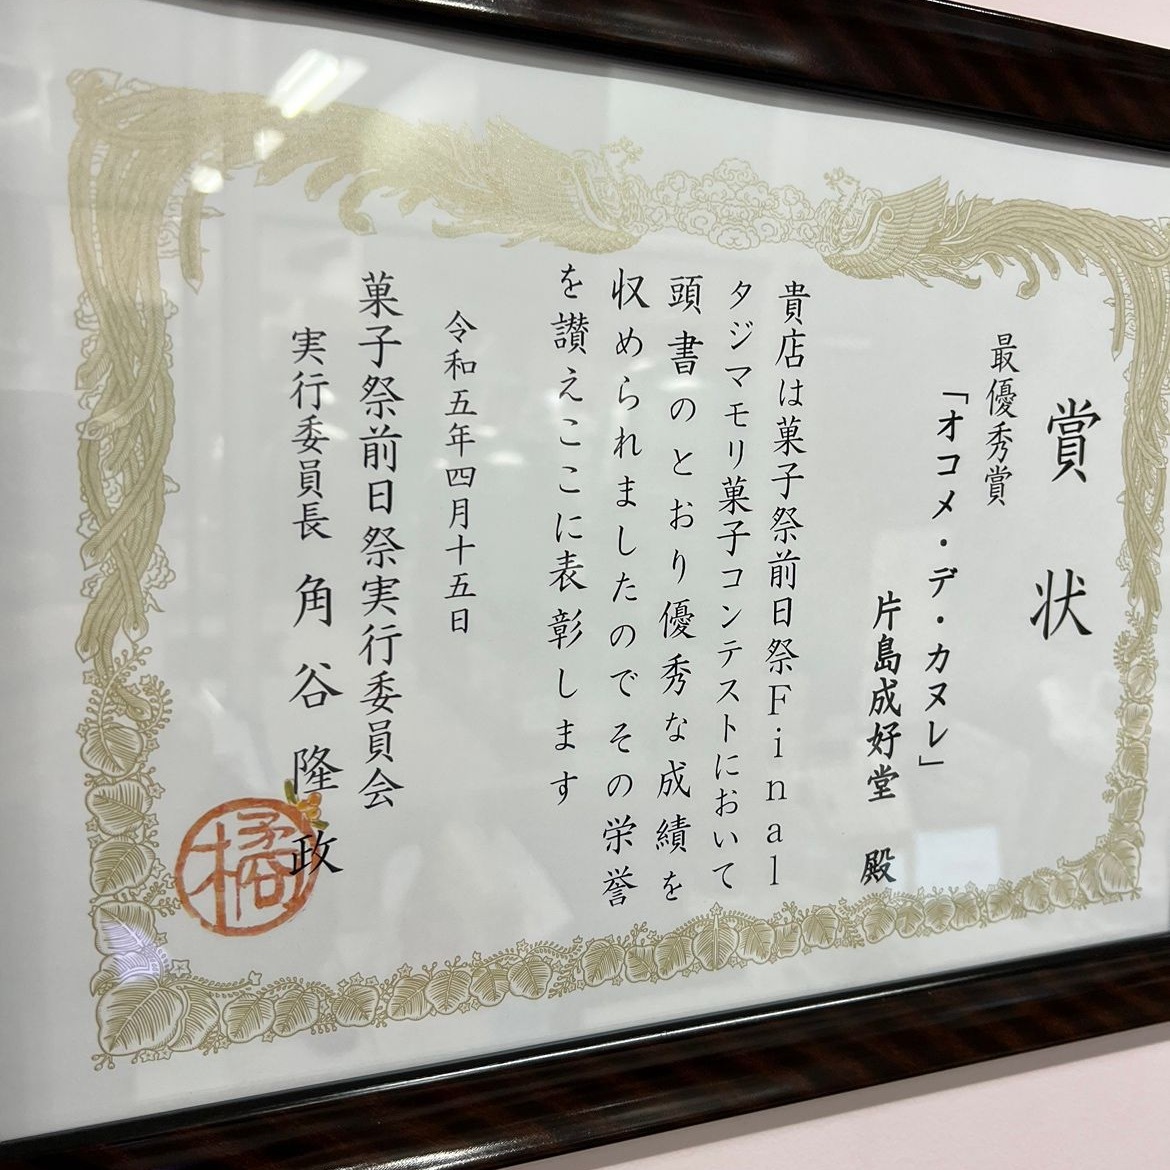 賞状
最優秀賞
「オコメ・デ・カヌレ」
片島成好堂 殿
貴店は菓子祭前日祭Final
タジマモリ菓子コンテストにおいて
頭書のとおり優秀な成績を
収められましたのでその栄誉
を讃えここに表彰します
令和五年四月十五日
菓子祭前日祭実行委員会
実行委員長 角谷隆政
橘